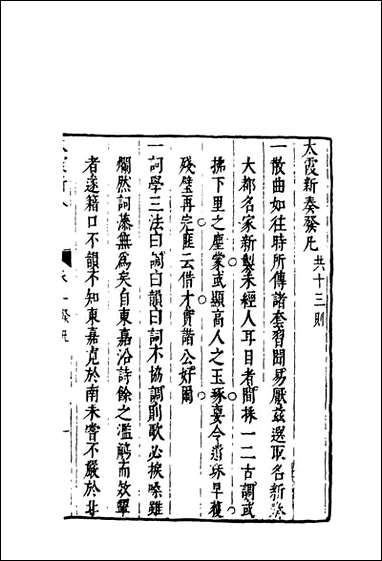 太霞新奏發凡 共十三則
一散曲如往時所傳諸套習聞易厭茲選取名新奏
大都名家新製未經人耳目者間採一二古調或
拂下里之塵蒙或顯高人之玉琢要令遺珠早獲
殘璧再完匪云借才實諧公好爾
一詞學三法曰調曰韻曰詞不協調則歌必捩嗓雖
爛然詞藻無為矣自東嘉沿詩餘之濫觴而效顰
者遂藉口不韻不知東嘉寬於南未嘗不嚴於北